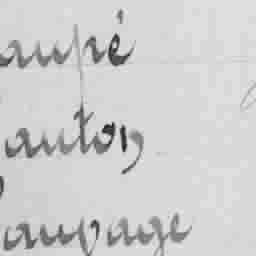 aupé
auton
aupage